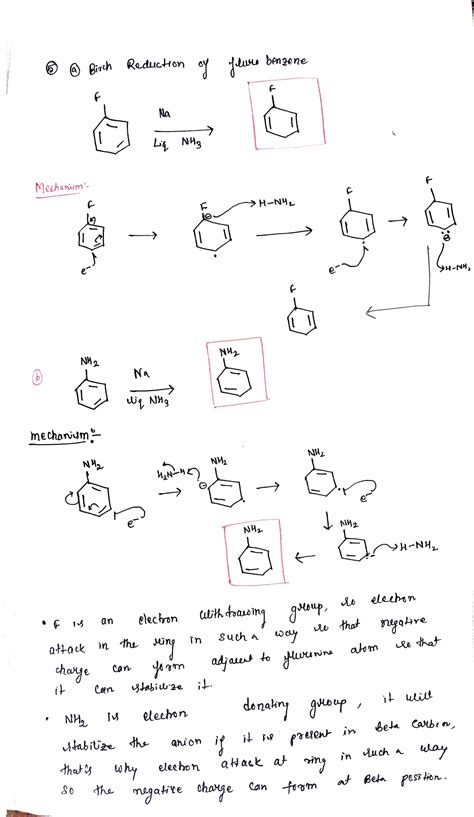 5 a Birch Reduction of fluro benzene
F
F
Na
Liq NH3
Mechanism:-
F
F
H-NH2
F
F
e-
e-
H-NH2
F
b
NH2
Na
liq NH3
NH2
mechanism:-
NH2
H2N-H
NH2
NH2
e-
e-
NH2
NH2
H-NH2
• F is an electron withdrawing group, so electron
attack in the ring in such a way so that negative
charge can form adjacent to flurine atom so that
it can stabilize it.
• NH2 is electron donating group, it will
stabilize the anion if it is present in Beta Carbon,
that's why electron attack at ring in such a way
so the negative charge can form at Beta position.